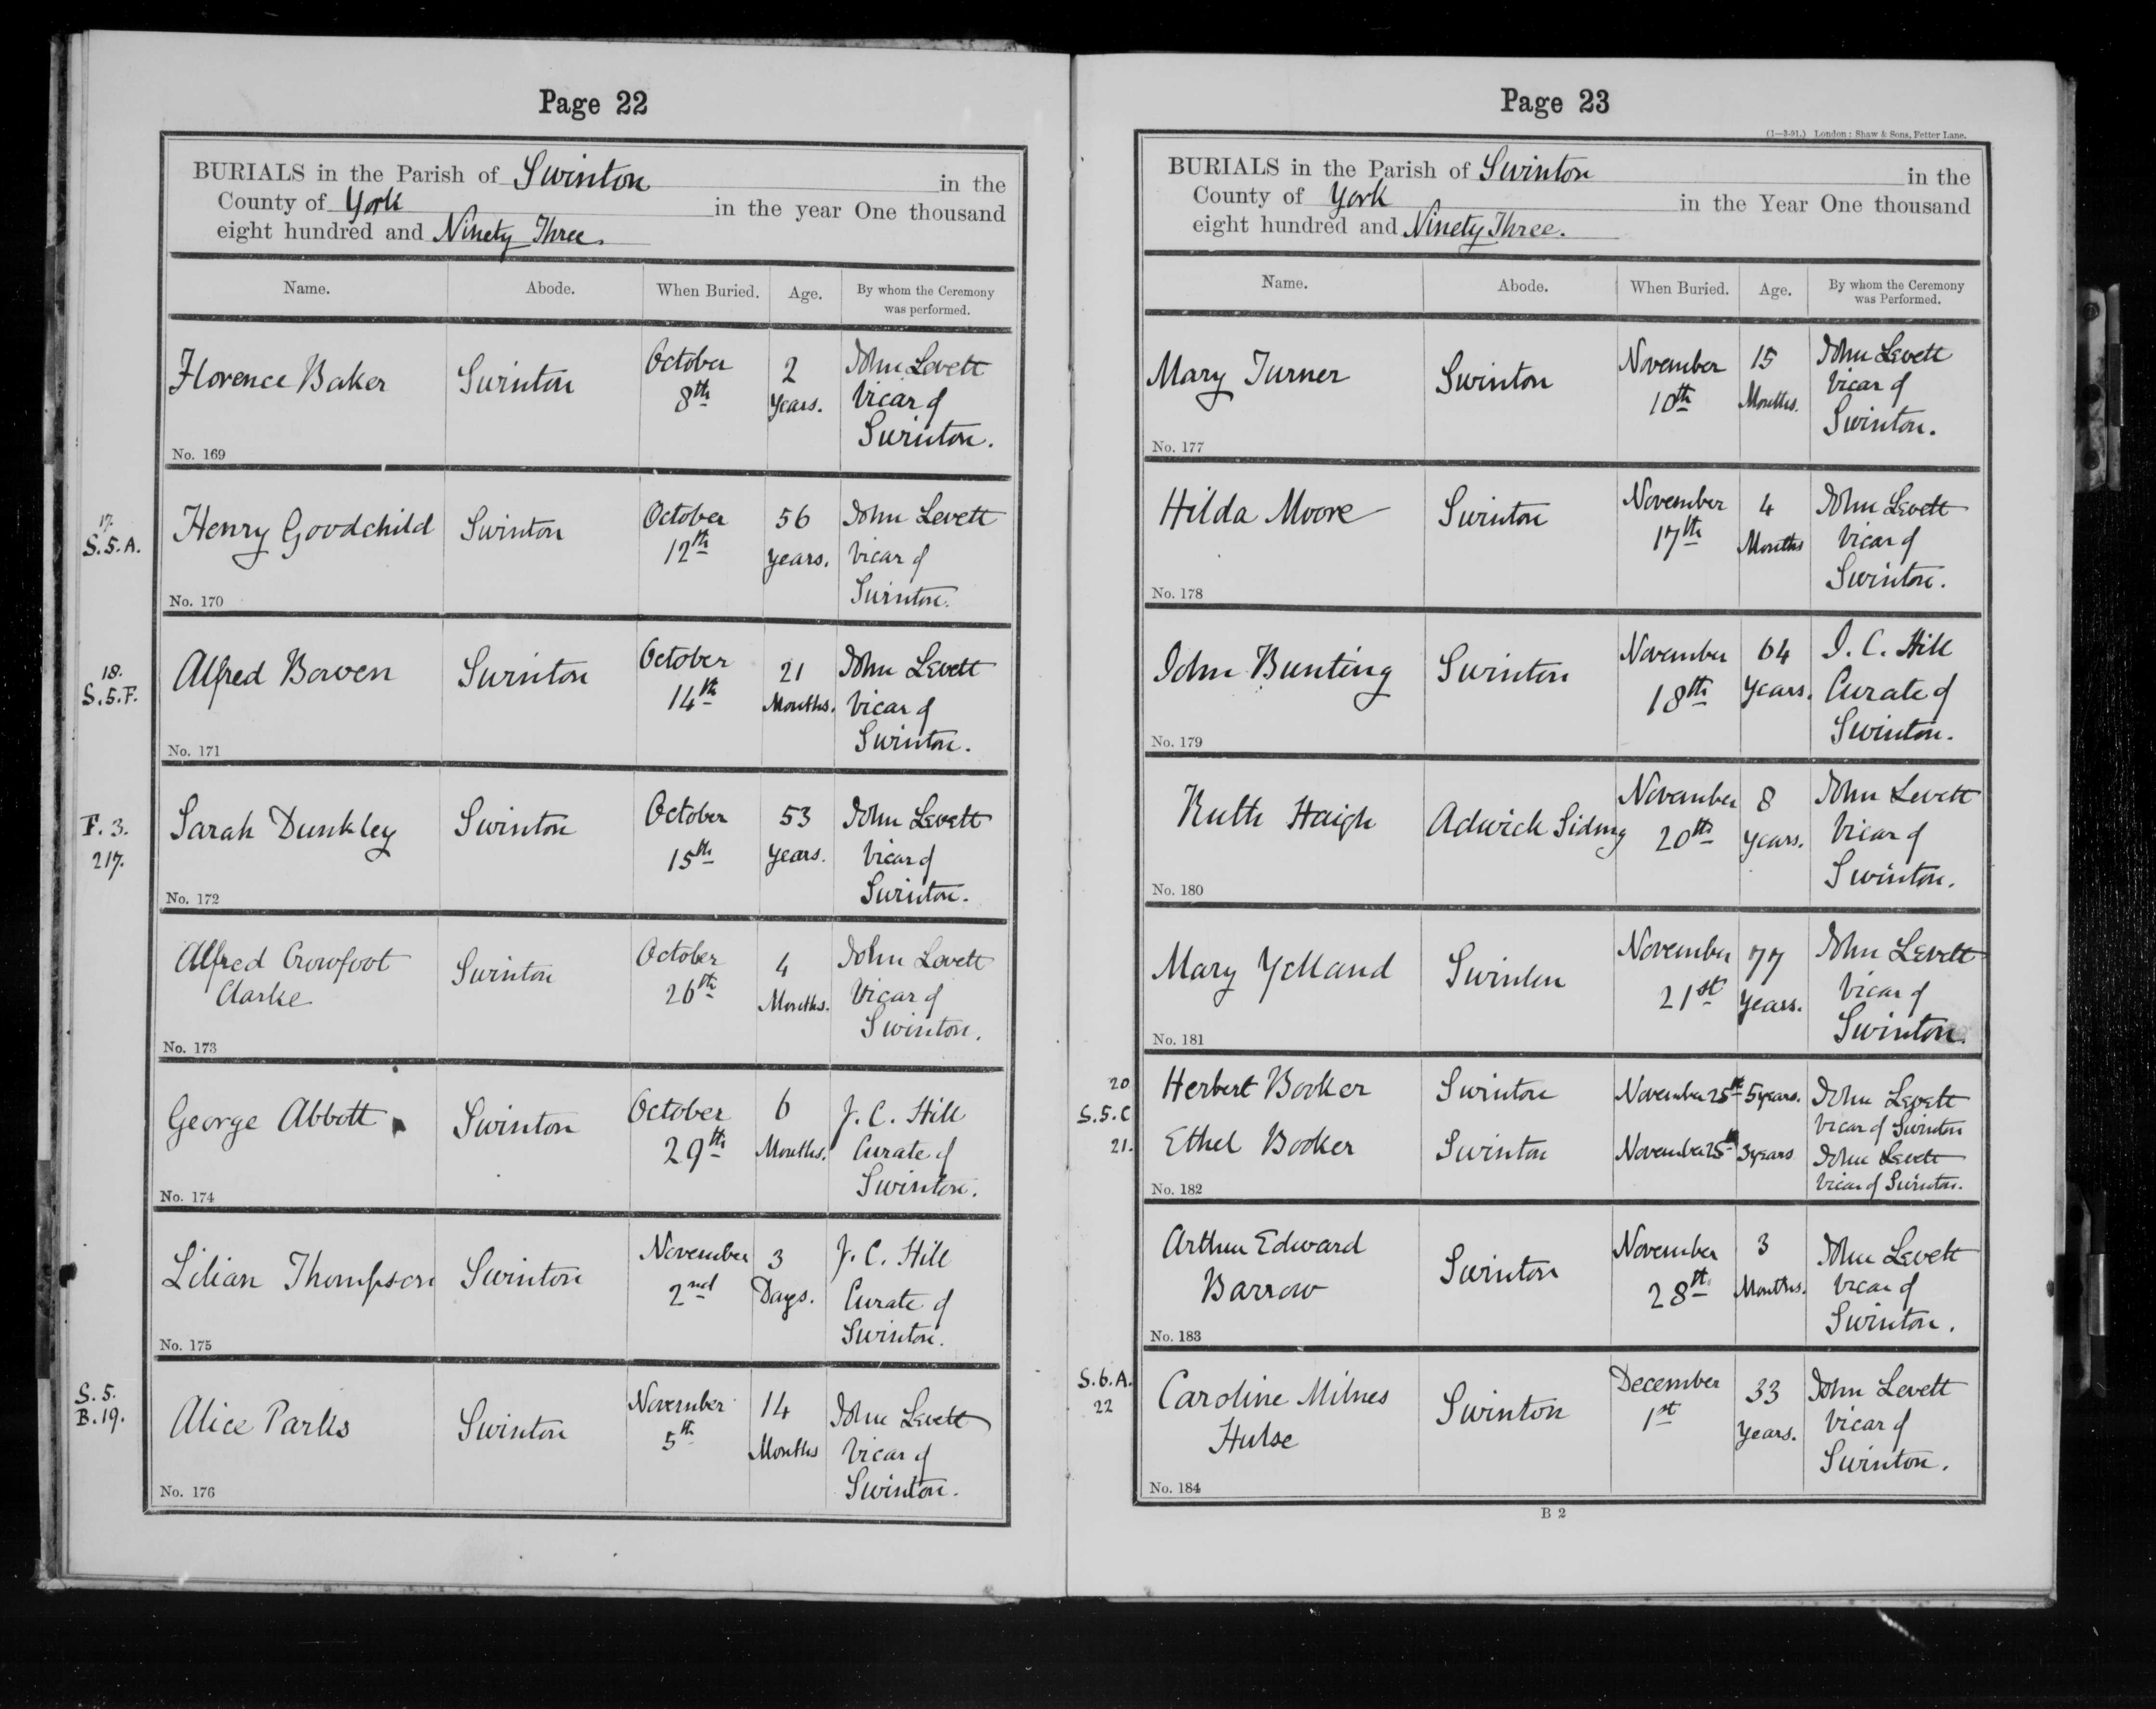 Page 22
BURIALS in the Parish of Swinton in the
County of York in the year One thousand
eight hundred and Ninety Three.
Name. Abode. When Buried. Age. By whom the Ceremony
was performed.
Florence Baker Swinton October 8th 2 Years. John Levett
Vicar of
Swinton.
No. 169
17.
S.5.A.
Henry Goodchild Swinton October 12th 56 years. John Levett
Vicar of
Swinton.
No. 170
18.
S.5.F.
Alfred Bowen Swinton October 14th 21 Months. John Levett
Vicar of
Swinton.
No. 171
F. 3.
217.
Sarah Dunkley Swinton October 15th 53 years. John Levett
Vicar of
Swinton.
No. 172
Alfred Crowfoot
Clarke Swinton October 26th 4 Months. John Levett
Vicar of
Swinton.
No. 173
George Abbott Swinton October 29th 6 Months. J. C. Hill
Curate of
Swinton.
No. 174
Lilian Thompson Swinton November 2nd 3 Days. J. C. Hill
Curate of
Swinton.
No. 175
S. 5.
B. 19.
Alice Parks Swinton November 5th 14 Months John Levett
Vicar of
Swinton.
No. 176
Page 23
(1—3-91.) London: Shaw & Sons, Fetter Lane.
BURIALS in the Parish of Swinton in the
County of York in the Year One thousand
eight hundred and Ninety Three.
Name. Abode. When Buried. Age. By whom the Ceremony
was Performed.
Mary Turner Swinton November 10th 15 Months. John Levett
Vicar of
Swinton.
No. 177
Hilda Moore Swinton November 17th 4 Months John Levett
Vicar of
Swinton.
No. 178
John Bunting Swinton November 18th 64 Years. J. C. Hill
Curate of
Swinton.
No. 179
Ruth Haigh Adwick Siding November 20th 8 years. John Levett
Vicar of
Swinton.
No. 180
Mary Yelland Swinton November 21st 77 Years. John Levett
Vicar of
Swinton.
No. 181
20
S.5.C
21.
Herbert Booker Swinton November 25th 5 years. John Levett
Vicar of Swinton
Ethel Booker Swinton November 25th 3 years John Levett
Vicar of Swinton.
No. 182
Arthur Edward
Barrow Swinton November 28th 3 Months. John Levett
Vicar of
Swinton.
No. 183
S.6.A.
22
Caroline Milnes
Hulse Swinton December 1st 33 Years. John Levett
Vicar of
Swinton.
No. 184
B 2